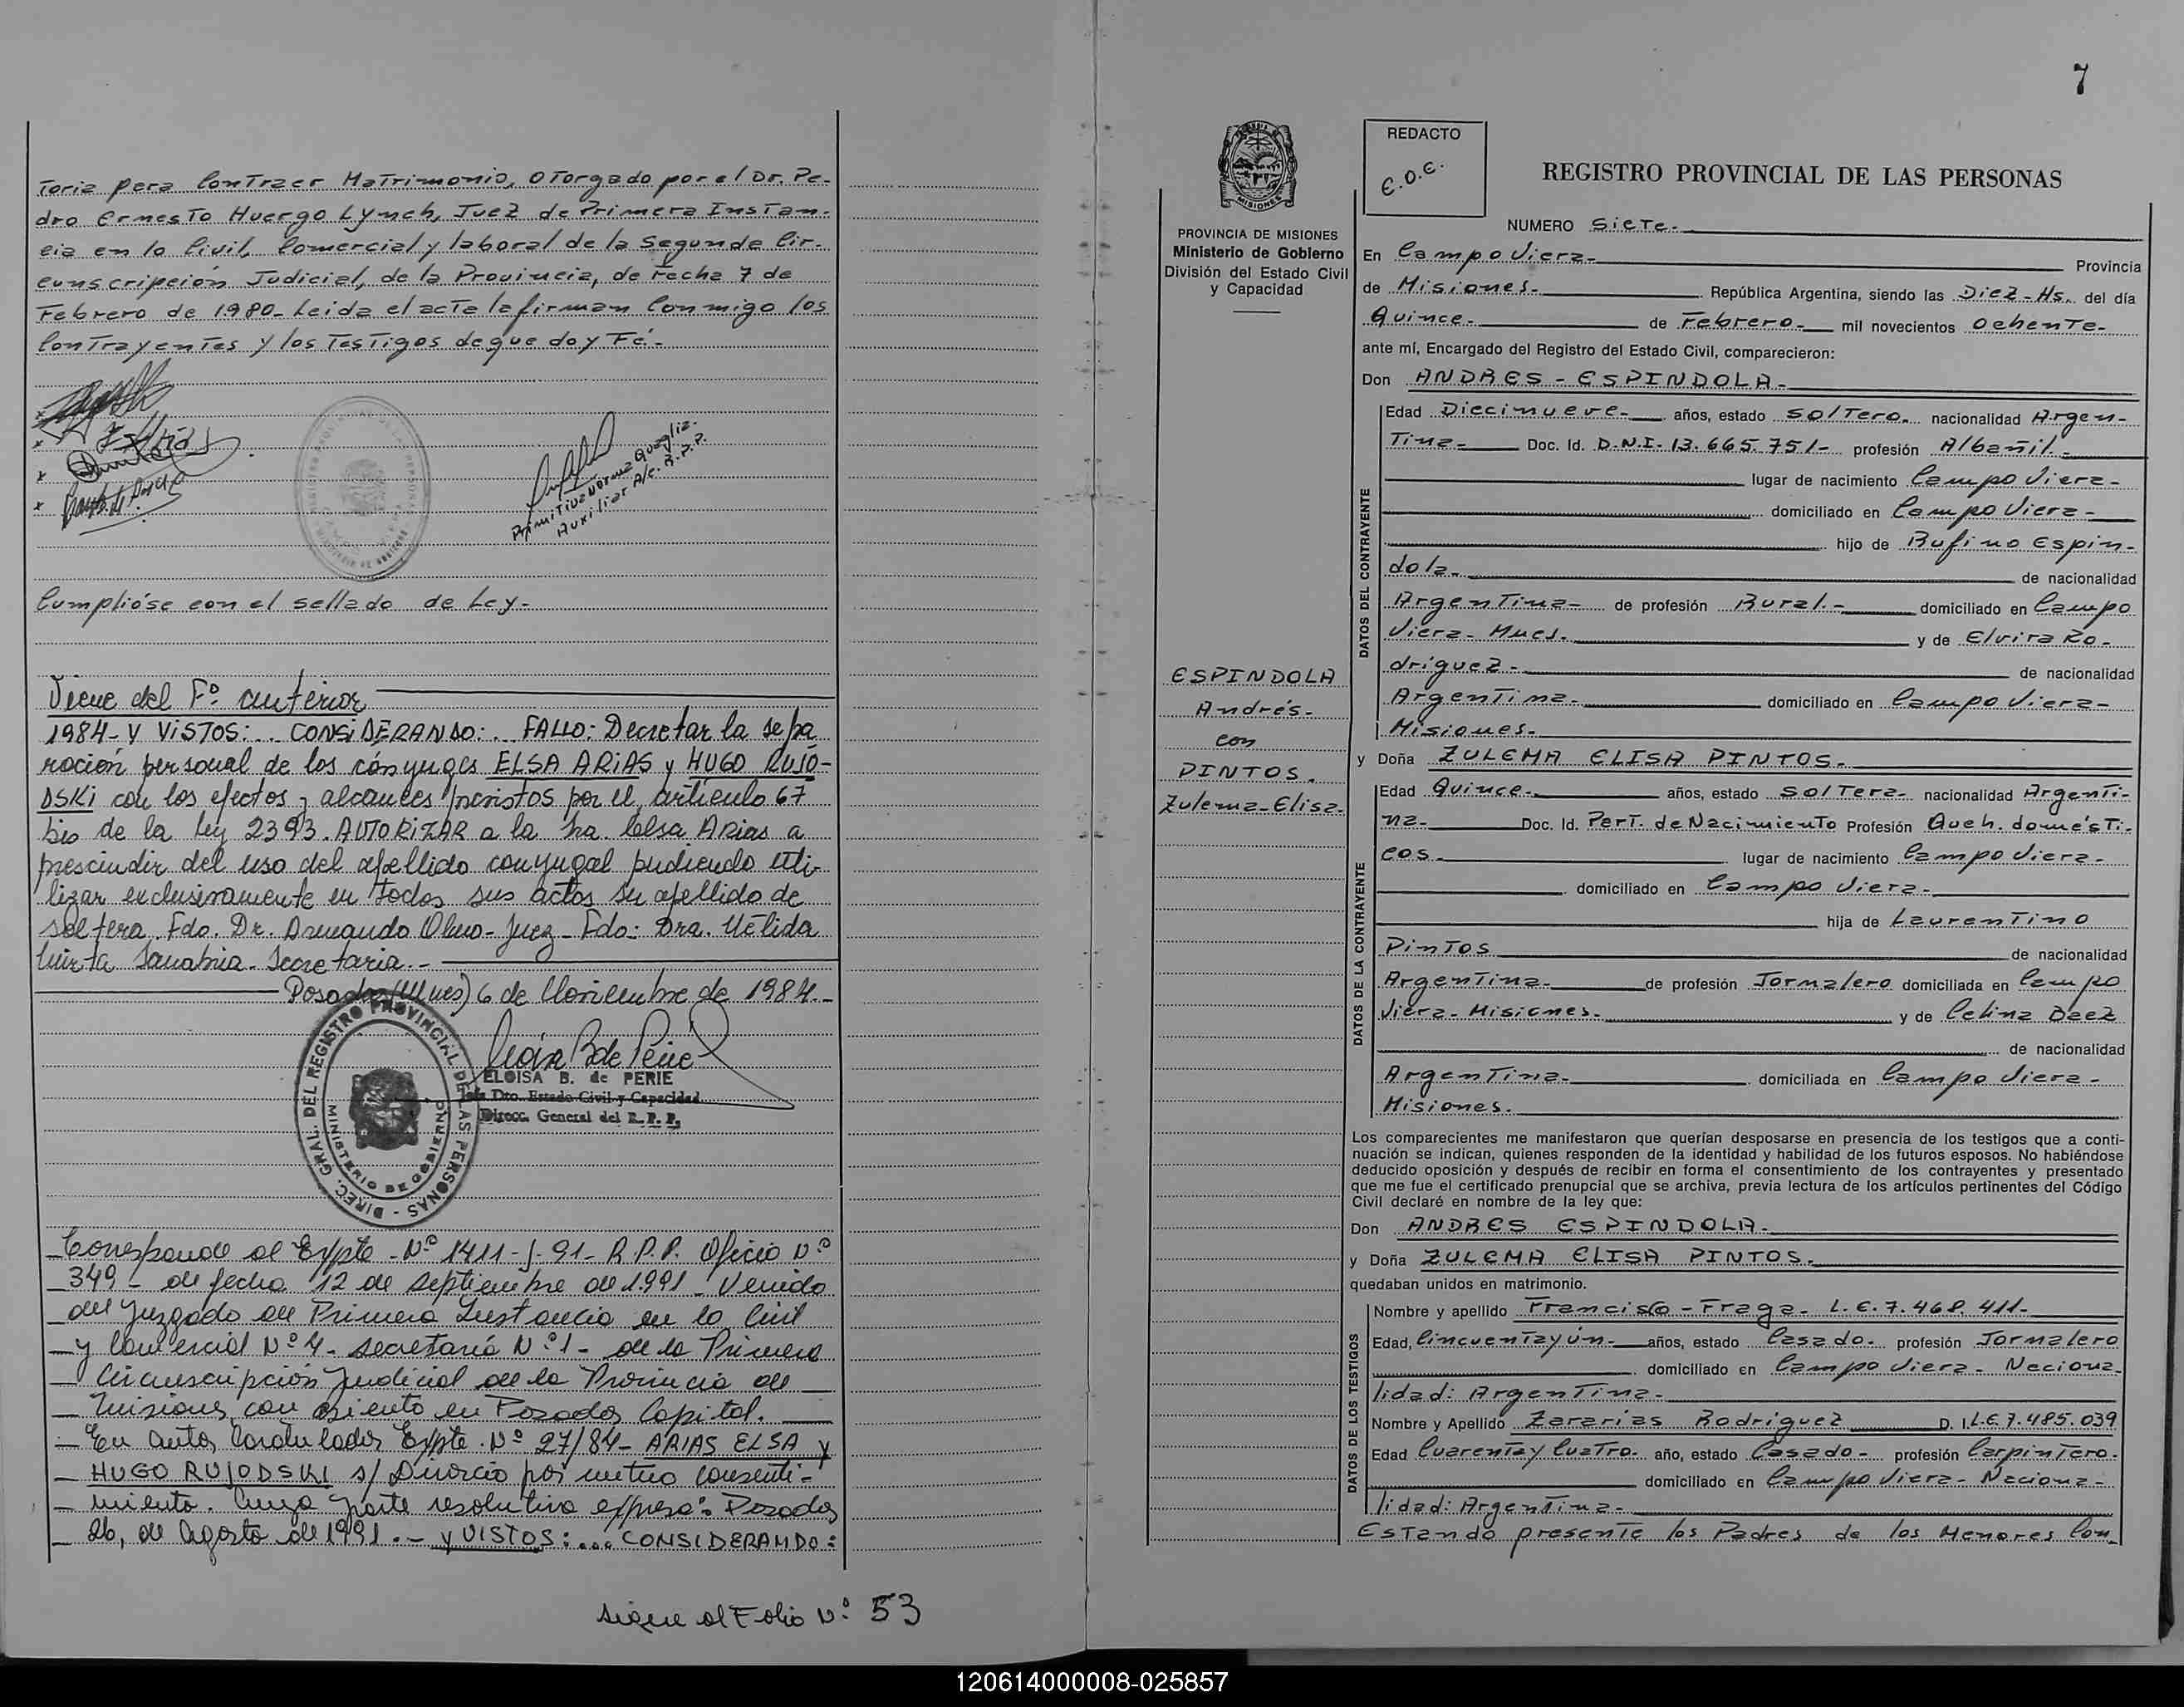 Toria para Contraer Matrimonio, otorgado por el Dr. Pe-
dro Ernesto Huergo Lynch, Juez de Primera Instan-
cia en lo Civil, Comercial y laboral de la Segunda Cir-
cunscripción Judicial, de la Provincia, de Fecha 7 de
Febrero de 1980_ Leida el acta la firman Conmigo los
Contrayentes y los Testigos de que doy Fé.-
Primitiva Norma Quaglia.
Auxiliar A/c. R.P.P.
Cumplióse con el sellado de Ley.-
Viene del Fº anterior
1984- Y VISTOS:.. CONSIDERANDO:.. FALLO: Decretar la sepa
ración personal de los cónyuges ELSA ARIAS y HUGO RUJO-
DSKI con los efectos y alcances previstos por el artículo 67
bis de la ley 2393. AUTORIZAR a la Sra. Elsa Arias a
prescindir del uso del apellido conyugal pudiendo uti-
lizar exclusivamente en todos sus actos su apellido de
soltera. Fdo. Dr. Armando Olmo- Juez- Fdo: Dra. Nélida
Mirta Sanabria. Secretaria.-
Posadas (Mnes) 6 de Noviembre de 1984.-
DIREC. GRAL. DEL REGISTRO PROVINCIAL DE LAS PERSONAS -
MINISTERIO DE GOBIERNO
ELOISA B. de PERIE
Jefe Dto. Estado Civil y Capacidad
Direcc. General del R. P. P.
Corresponde al Expte - Nº 1411-J-91- R.P.P. Oficio Nº
349 - de fecha 12 de septiembre de 1991 - Venido
del Juzgado de Primera Instancia en lo Civil
y Comercial Nº 4- secretaría Nº 1- de la Primera
Circunscripción Judicial de la Provincia de
Misiones con asiento en Posadas Capital.
En autos Caratulados Expte. Nº 27/84- ARIAS ELSA y
HUGO RUJODSKI s/ Divorcio por mutuo Consenti-
miento. Cuya parte resolutiva expresa: Posadas
26, de Agosto de 1991.- y VISTOS:... CONSIDERANDO:
sigue al Folio Nº 53
7
PROVINCIA DE MISIONES
Ministerio de Gobierno
División del Estado Civil
y Capacidad
ESPINDOLA
Andrés-
con
PINTOS.
Zulema-Elisa-
REDACTO
E.O.E.
REGISTRO PROVINCIAL DE LAS PERSONAS
NUMERO Siete.-
En Campo Viera- Provincia
de Misiones.- República Argentina, siendo las Diez-Hs. del día
Quince.- de Febrero.- mil novecientos ochenta-
ante mí, Encargado del Registro del Estado Civil, comparecieron:
Don ANDRES - ESPINDOLA.-
DATOS DEL CONTRAYENTE
Edad Diecinueve.- años, estado Soltero.. nacionalidad Argen-
Tina- Doc. Id. D.N.I. 13.665.751- profesión Albañil.-
lugar de nacimiento Campo Viera-
domiciliado en Campo Viera-
hijo de Rufino Espin-
dola- de nacionalidad
Argentina- de profesión Rural.- domiciliado en Campo
Viera- Mnes.- y de Elvira Ro-
driguez.- de nacionalidad
Argentina- domiciliado en Campo Viera-
Misiones.-
y Doña ZULEMA ELISA PINTOS.-
DATOS DE LA CONTRAYENTE
Edad Quince.- años, estado Soltera- nacionalidad Argenti-
na- Doc. Id. Part. de Nacimiento Profesión Queh. domésti-
cos.- lugar de nacimiento Campo Viera-
domiciliado en Campo Viera-
hija de Laurentino
Pintos de nacionalidad
Argentina- de profesión Jornalero domiciliada en Campo
Viera- Misiones.- y de Celina Baez
de nacionalidad
Argentina- domiciliada en Campo Viera-
Misiones.
Los comparecientes me manifestaron que querían desposarse en presencia de los testigos que a conti-
nuación se indican, quienes responden de la identidad y habilidad de los futuros esposos. No habiéndose
deducido oposición y después de recibir en forma el consentimiento de los contrayentes y presentado
que me fue el certificado prenupcial que se archiva, previa lectura de los artículos pertinentes del Código
Civil declaré en nombre de la ley que:
Don ANDRES ESPINDOLA.-
y Doña ZULEMA ELISA PINTOS.-
quedaban unidos en matrimonio.
DATOS DE LOS TESTIGOS
Nombre y apellido Francisco - Fraga- L.E. 7.468.411-
Edad, Cincuentayún- años, estado Casado- profesión Jornalero
domiciliado en Campo Viera- Naciona-
lidad: Argentina-
Nombre y Apellido Zararias Rodriguez D. I. L.E. 7.485.039
Edad Cuarentay Cuatro- año, estado Casado- profesión Carpintero-
domiciliado en Campo Viera- Naciona-
lidad: Argentina-
Estando presente los Padres de los Menores Con_
120614000008-025857